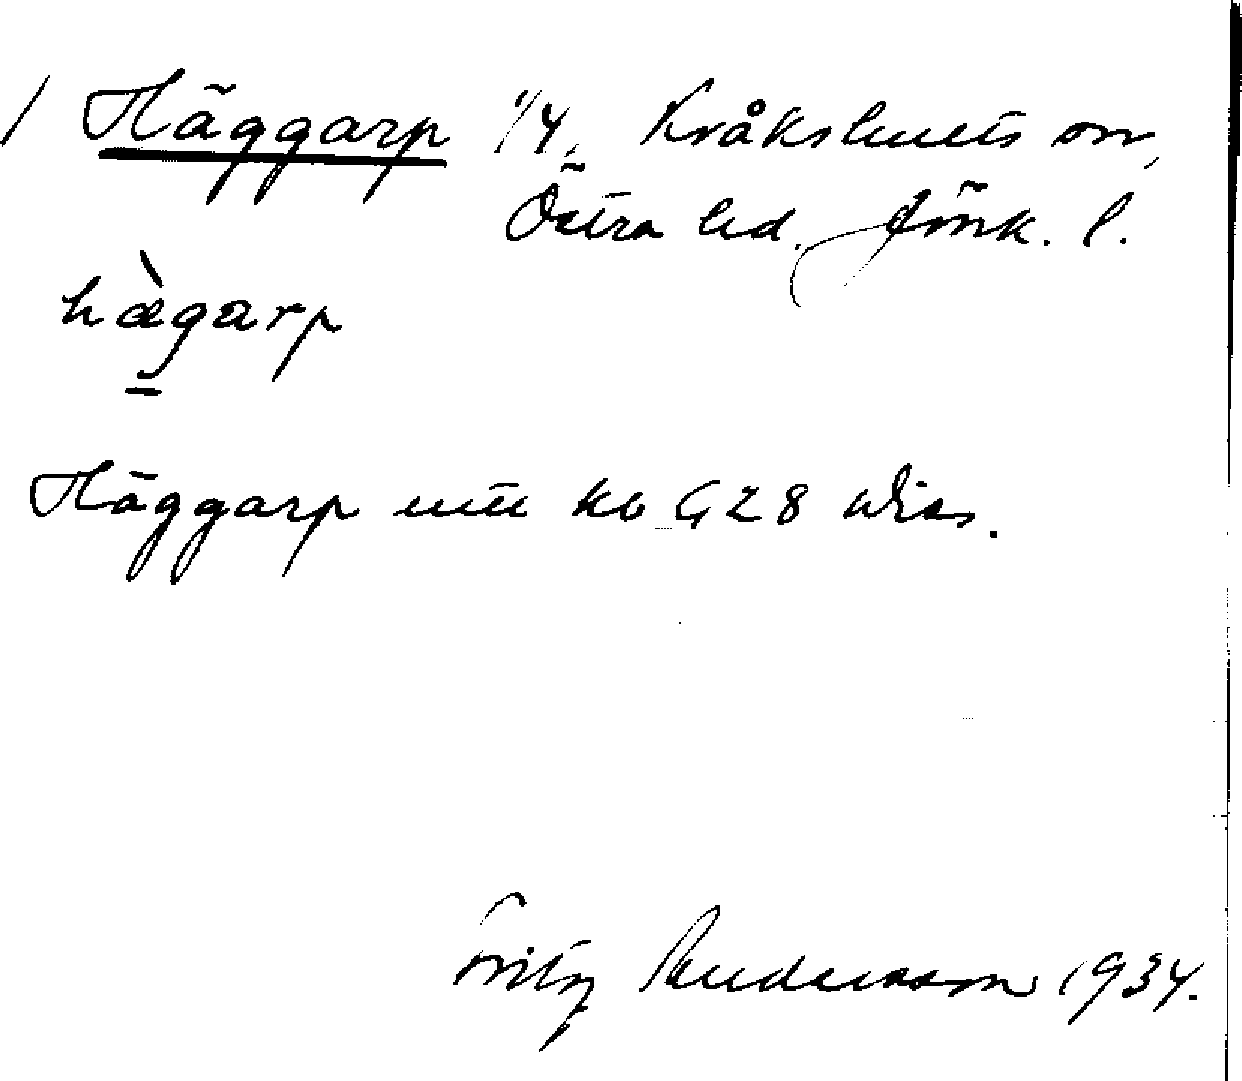 / Häggarp 1/4, Kråkshults sn,
Östra hd. Jönk. l.
hægarp
Häggarp utt kb G28 Wias.
Fritz Andersson 1934.